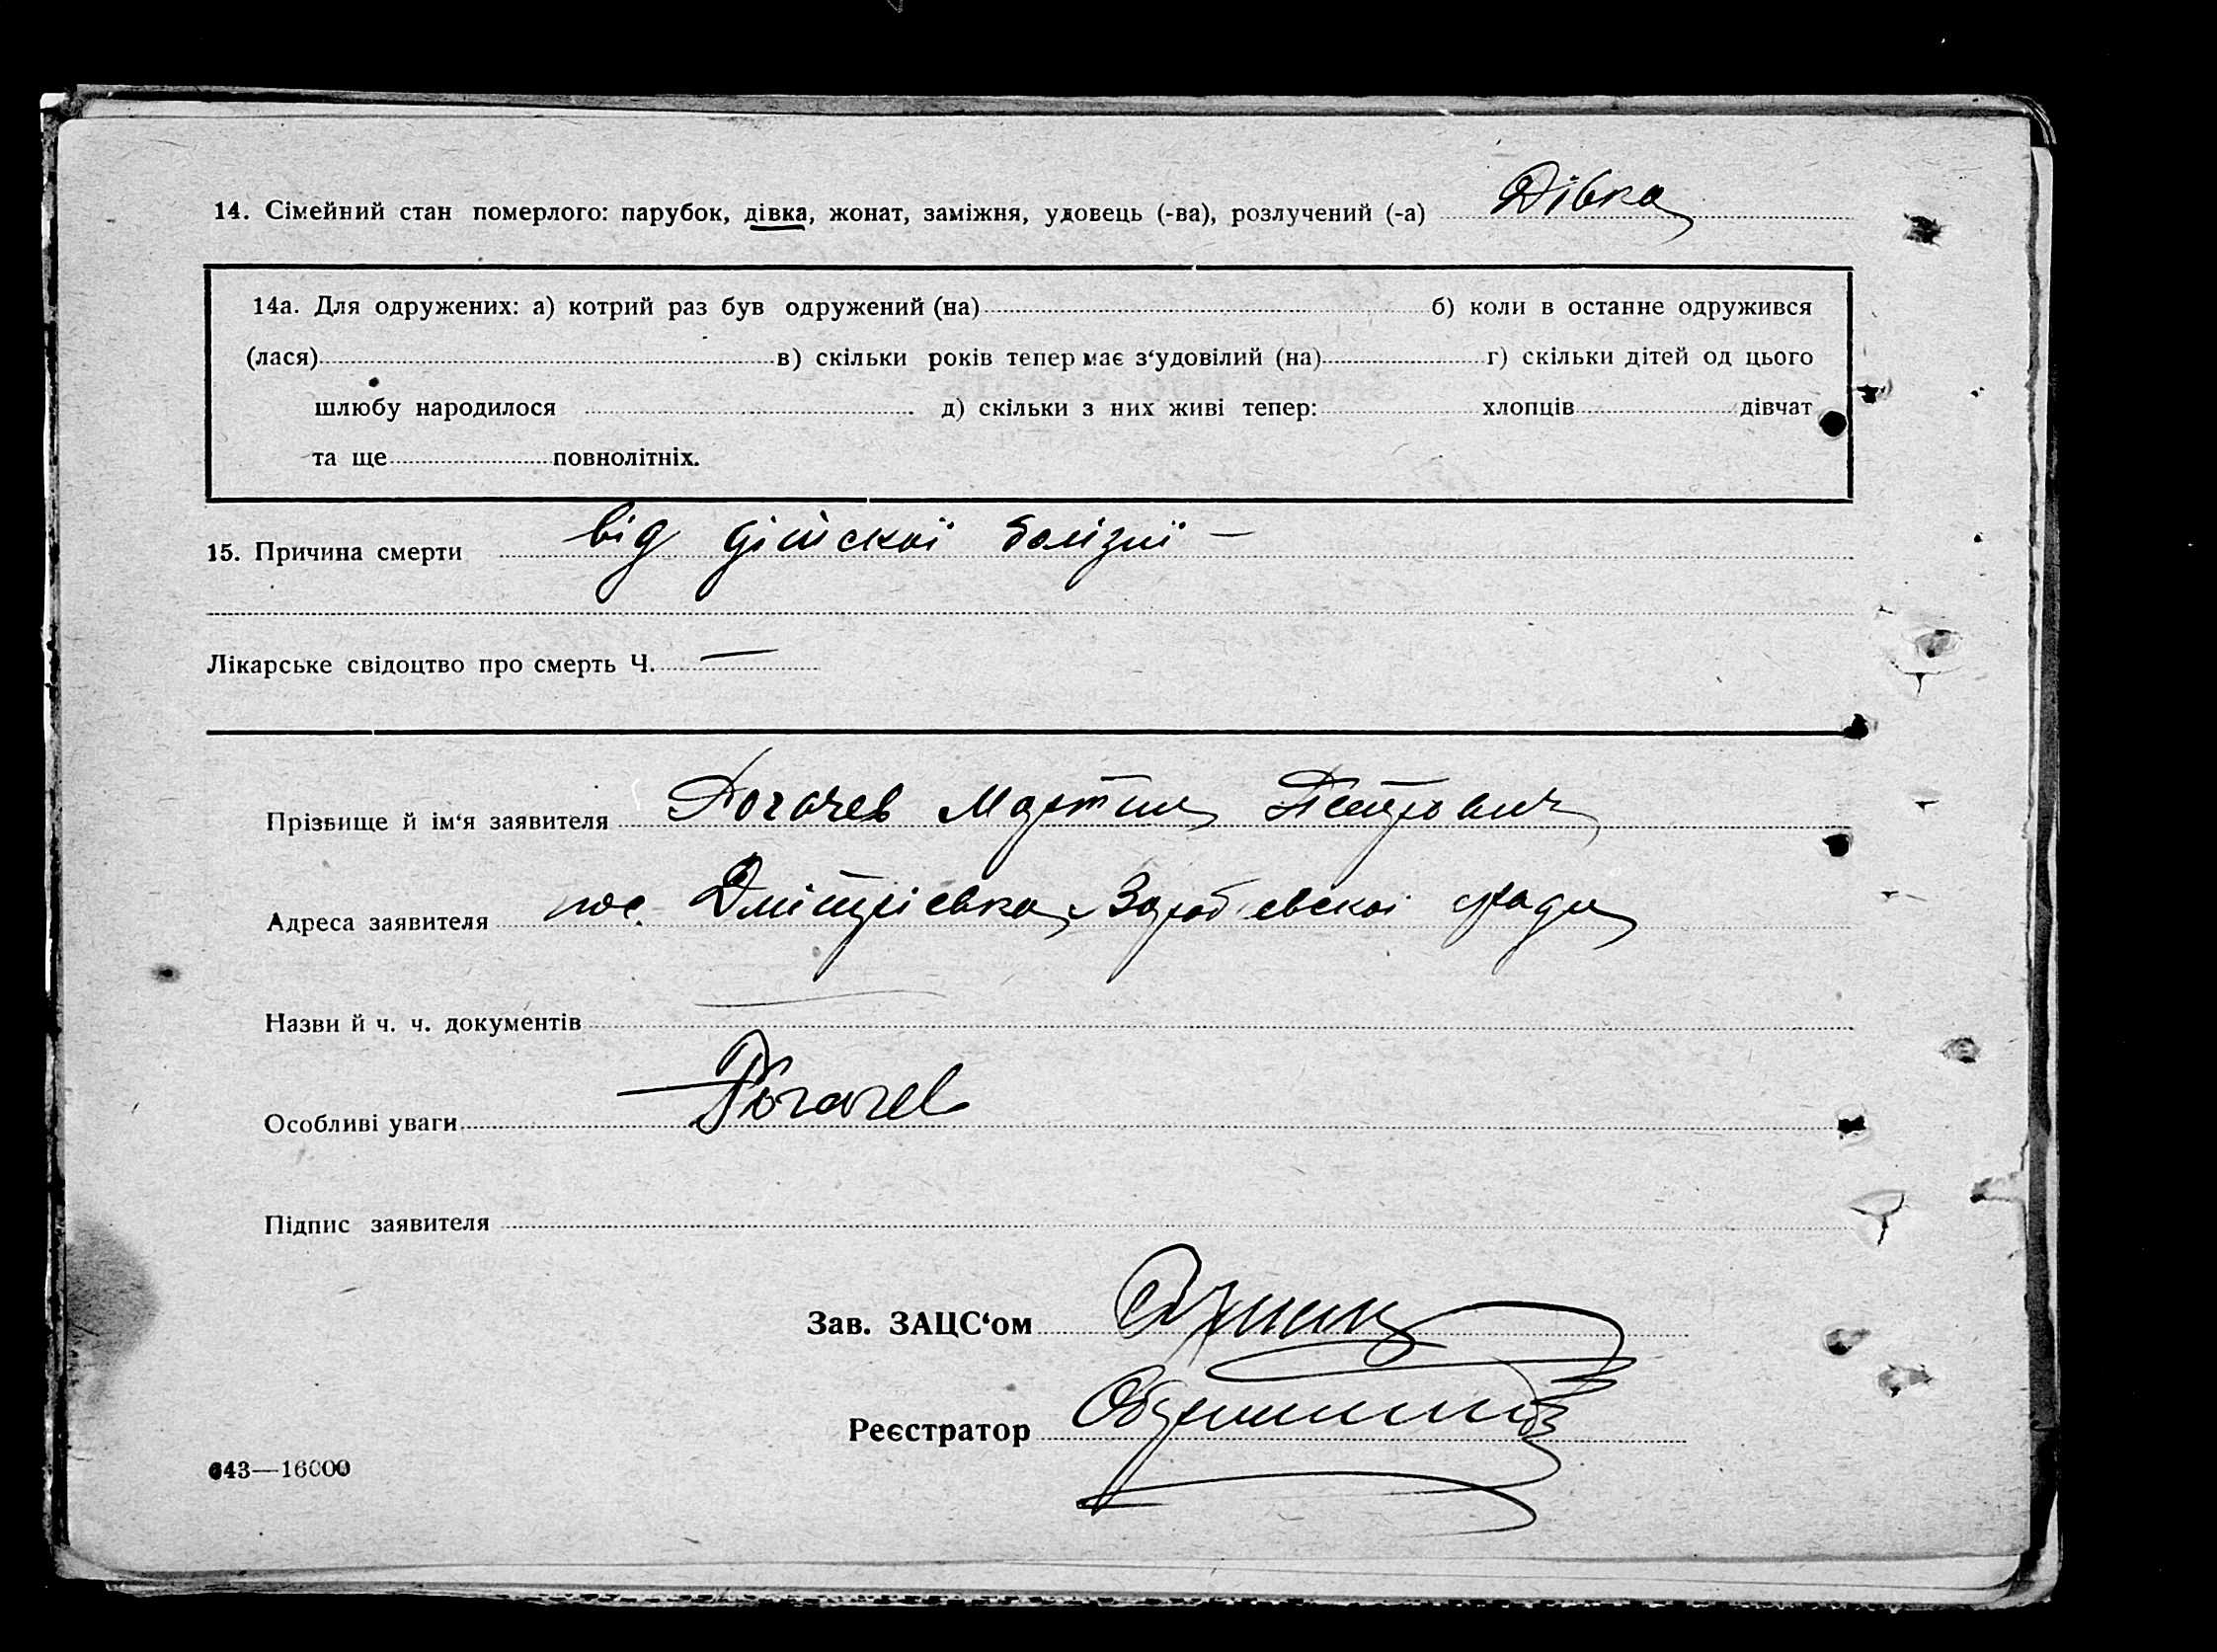 14. Сімейний стан померлого: парубок, дівка, жонат, заміжня, удовець (-ва), розлучений (-а) Дівка
14а. Для одружених: а) котрий раз був одружений (на) б) коли в останне одружився
(лася) в) скільки років тепер має з‘удовілий (на) г) скільки дітей од цього
шлюбу народилося д) скільки з них живі тепер: хлопців дівчат
та ще повнолітніх.
15. Причина смерти від дійскої болізні —
Лікарське свідоцтво про смерть Ч. —
Прізвище й ім‘я заявителя Рогачев Мартин Петрович
Адреса заявителя пос. Дмітрієвка, ради
Назви й ч. ч. документів
Особливі уваги Рогачев
Підпис заявителя
Зав. ЗАЦС‘ом
Реєстратор
643—16000